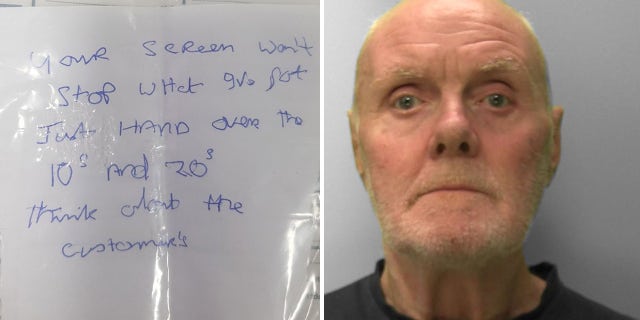 Your screen won't
stop what I've got
Just HAND over the
10s and 20s
think about the
customer's